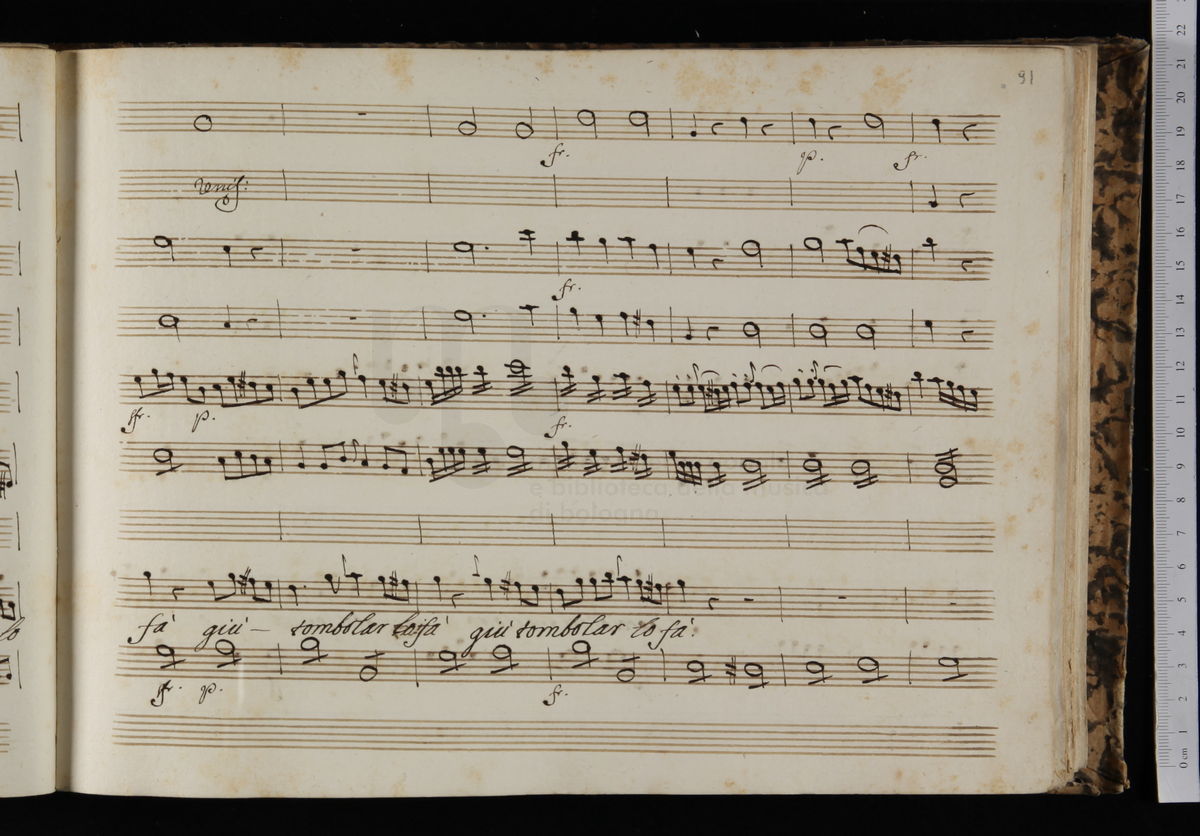 91
fr.
p.
fr.
Unis:
fr.
fr.
p.
fr.
fà giù – tombolar lo fà giù tombolar lo fà.
fr.
p.
fr.
e biblioteca della musica
di bologna
0 cm 1 2 3 4 5 6 7 8 9 10 11 12 13 14 15 16 17 18 19 20 21 22